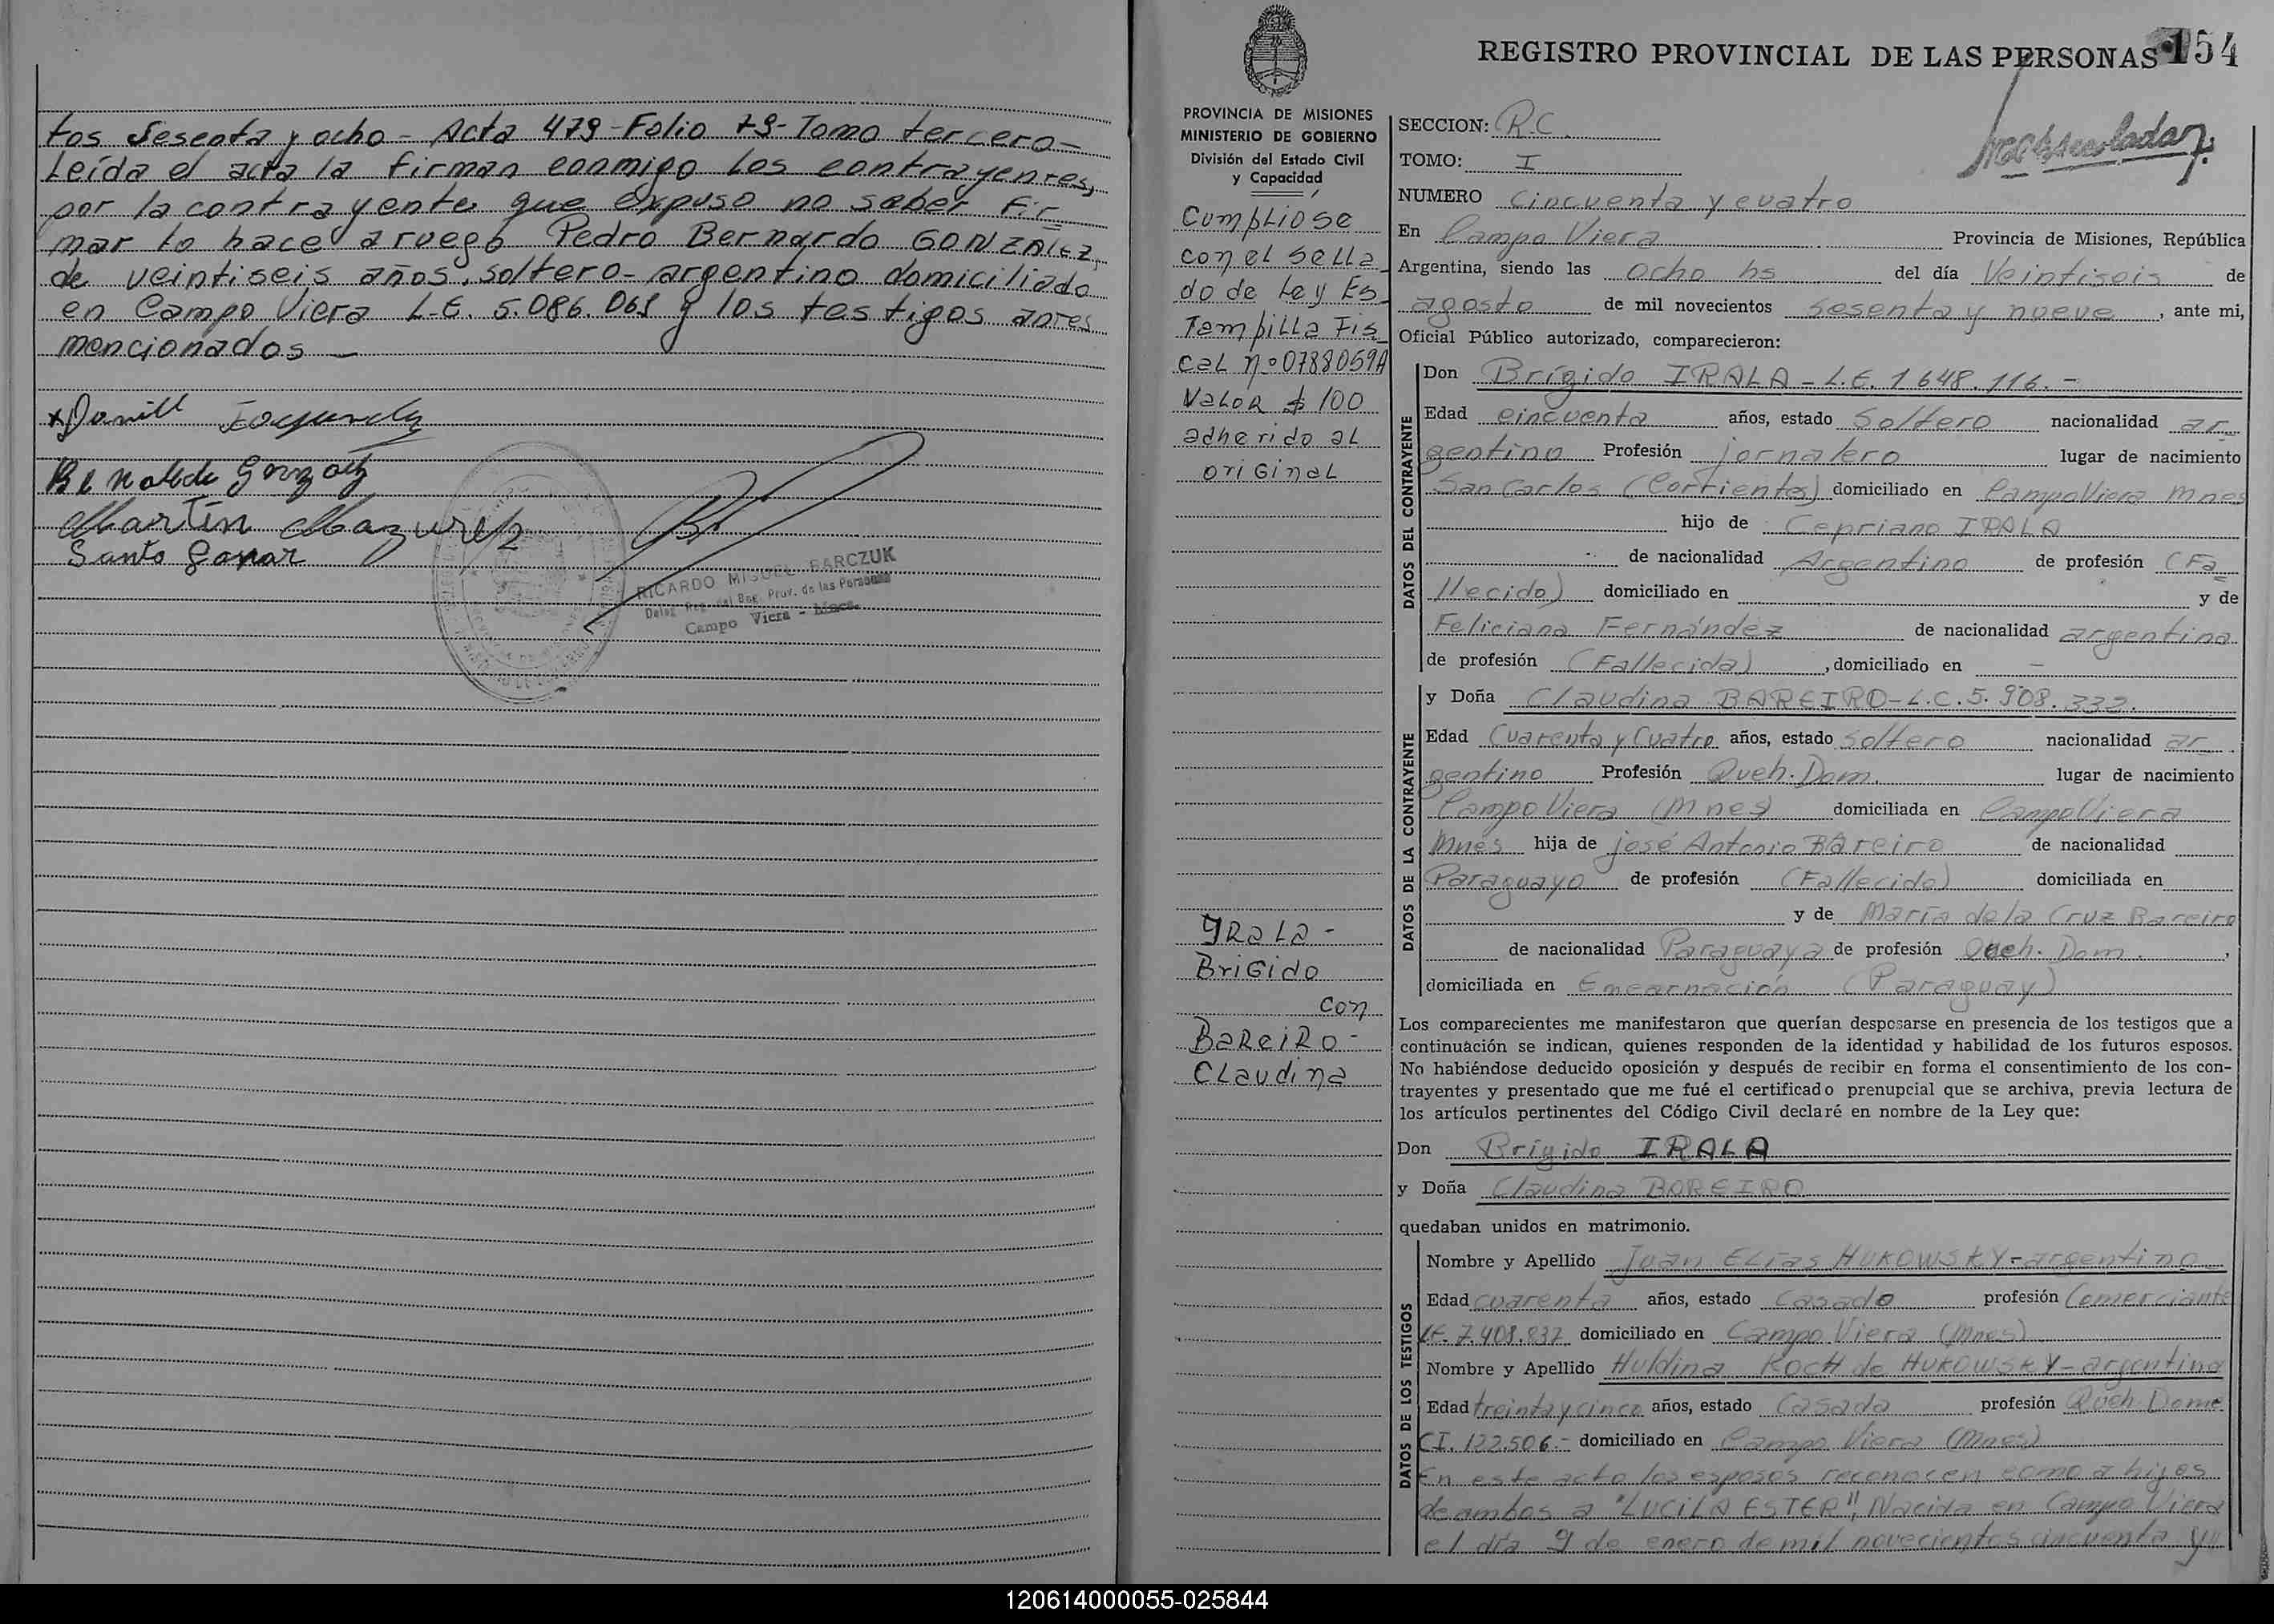 tos Sesenta y ocho - Acta 479 - Folio 79 - Tomo tercero -
Leída el acta la firman conmigo los contrayentes,
por la contrayente que expuso no saber fir-
mar lo hace a ruego Pedro Bernardo GONZALEZ,
de veintiseis años, soltero - argentino domiciliado
en Campo Viera L.E. 5.086.068 y los testigos antes
mencionados -
Martín
Santo
RICARDO MIGUEL BARCZUK
Campo Viera - Mnes.
REGISTRO PROVINCIAL DE LAS PERSONAS 154
PROVINCIA DE MISIONES
MINISTERIO DE GOBIERNO
División del Estado Civil
y Capacidad
Cumpliose
con el sella_
do de Ley Es_
Tampilla Fis_
cal nº 0788059A
Valor $ 100
adherido al
original
Yrala -
Brigido
con
Bareiro -
Claudina
SECCION: R.C.
TOMO: I
NUMERO Cincuenta y cuatro
En Campo Viera Provincia de Misiones, República
Argentina, siendo las ocho hs del día Veintiseis de
agosto de mil novecientos sesenta y nueve, ante mi,
Oficial Público autorizado, comparecieron:
DATOS DEL CONTRAYENTE
Don Brígido IRALA - L.E. 1648.116. -
Edad cincuenta años, estado Soltero nacionalidad ar_
gentino Profesión jornalero lugar de nacimiento
San Carlos (Corrientes) domiciliado en Campo Viera Mnes
hijo de Cepriano IRALA
de nacionalidad Argentino de profesión (Fa_
llecido) domiciliado en y de
Feliciana Fernández de nacionalidad argentina
de profesión (Fallecida), domiciliado en -
DATOS DE LA CONTRAYENTE
y Doña Claudina BAREIRO - L.C. 5.908.332.
Edad Cuarenta y Cuatro años, estado soltero nacionalidad ar_
gentino Profesión Queh. Dom. lugar de nacimiento
Campo Viera (Mnes) domiciliada en Campo Viera
Mnes hija de josé Antonio Bareiro de nacionalidad
Paraguayo de profesión (Fallecido) domiciliada en
y de María de la Cruz Bareiro
de nacionalidad Paraguaya de profesión Queh. Dom.,
domiciliada en Encarnación (Paraguay)
Los comparecientes me manifestaron que querían desposarse en presencia de los testigos que a
continuación se indican, quienes responden de la identidad y habilidad de los futuros esposos.
No habiéndose deducido oposición y después de recibir en forma el consentimiento de los con-
trayentes y presentado que me fué el certificado prenupcial que se archiva, previa lectura de
los artículos pertinentes del Código Civil declaré en nombre de la Ley que:
Don Brígido IRALA
y Doña Claudina BAREIRO
quedaban unidos en matrimonio.
DATOS DE LOS TESTIGOS
Nombre y Apellido Juan Elías HUKOWSKY - argentino
Edad cuarenta años, estado casado profesión Comerciante
LE. 7.408.837 domiciliado en Campo Viera (Mnes)
Nombre y Apellido Huldina KOCH de HUKOWSKY - argentina
Edad treinta y cinco años, estado casada profesión Queh Dome
CI. 122.506 - domiciliado en Campo Viera (Mnes)
En este acto los esposos reconocen como a hijos
de ambos a "LUCILA ESTER", Nacida en Campo Viera
el día 9 de enero de mil novecientos cincuenta y
120614000055-025844